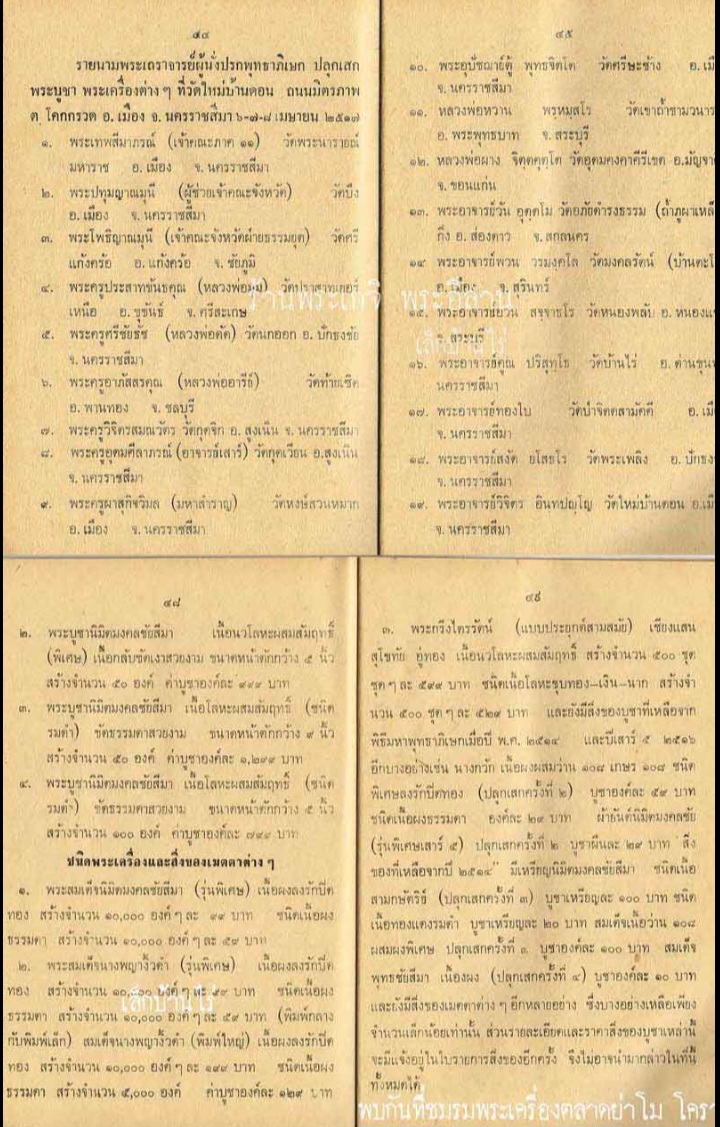 ๔๔
รายนามพระเถราจารย์ผู้นั่งปรกพุทธาภิเษก ปลุกเสก
พระบูชา พระเครื่องต่าง ๆ ที่วัดใหม่บ้านดอน ถนนมิตรภาพ
ต. โคกกรวด อ. เมือง จ. นครราชสีมา ๖-๗-๘ เมษายน ๒๕๑๗
๑. พระเทพสีมาภรณ์ (เจ้าคณะภาค ๑๑) วัดพระนารายณ์
มหาราช อ. เมือง จ. นครราชสีมา
๒. พระปทุมญาณมุนี (ผู้ช่วยเจ้าคณะจังหวัด) วัดบึง
อ. เมือง จ. นครราชสีมา
๓. พระโพธิญาณมุนี (เจ้าคณะจังหวัดฝ่ายธรรมยุต) วัดศรี
แก้งคร้อ อ. แก้งคร้อ จ. ชัยภูมิ
๔. พระครูประสาทขันธคุณ (หลวงพ่อมุม) วัดปราสาทเยอร์
เหนือ อ. ขุขันธ์ จ. ศรีสะเกษ
๕. พระครูศรีชัยธัช (หลวงพ่อดัด) วัดนกออก อ. ปักธงชัย
จ. นครราชสีมา
๖. พระครูอาภัสสรคุณ (หลวงพ่ออารีย์) วัดท้ายเซิด
อ. พานทอง จ. ชลบุรี
๗. พระครูวิจิตรสมณวัตร วัดกุดจิก อ. สูงเนิน จ. นครราชสีมา
๘. พระครูอุดมศีลาภรณ์ (อาจารย์เสาร์) วัดกุดเวียน อ.สูงเนิน
จ. นครราชสีมา
๙. พระครูผาสุกิจวิมล (มหาสำราญ) วัดหงษ์สวนหมาก
อ. เมือง จ. นครราชสีมา
๔๕
๑๐. พระอุปัชฌาย์ตู้ พุทธจิตโต วัดศรีษะช้าง อ. เมื
จ. นครราชสีมา
๑๑. หลวงพ่อหวาน พรหมสโร วัดเขาถ้ำชามวนาร
อ. พระพุทธบาท จ. สระบุรี
๑๒. หลวงพ่อผาง จิตตคุตโต วัดอุดมคงคาคีรีเขต อ.มัญจา
จ. ขอนแก่น
๑๓. พระอาจารย์วัน อุตตโม วัดอภัยดำรงธรรม (ถ้ำภูผาเหล็
กึง อ. ส่องดาว จ. สกลนคร
๑๔ พระอาจารย์พวน วรมงคโล วัดมงคลรัตน์ (บ้านตะโ
อ. เมือง จ. สุรินทร์
๑๕. พระอาจารย์ยวน สจจาธโร วัดหนองพลับ อ. หนองแ
จ. สระบุรี
๑๖. พระอาจารย์คูณ ปริสุทโธ วัดบ้านไร่ อ. ด่านขุน
นครราชสีมา
๑๗. พระอาจารย์ทองใบ วัดป่าจิตตสามัคคี อ. เมื
จ. นครราชสีมา
๑๘. พระอาจารย์สงัด ยโสธโร วัดพระเพลิง อ. ปักธง
จ. นครราชสีมา
๑๙. พระอาจารย์วิจิตร อินทปญโญ วัดใหม่บ้านดอน อ.เมื
จ. นครราชสีมา
ร้านพระเทจิ พระอีสาน
เล็กบ้านไร่
๔๘
๒. พระบูชานิมิตมงคลชัยสีมา เนื้อนวโลหะผสมสัมฤทธิ์
(พิเศษ) เนื้อกลับขัดเงาสวยงาม ขนาดหน้าตักกว้าง ๕ นิ้ว
สร้างจำนวน ๕๐ องค์ ค่าบูชาองค์ละ ๙๙๙ บาท
๓. พระบูชานิมิตมงคลชัยสีมา เนื้อโลหะผสมสัมฤทธิ์ (ชนิด
รมดำ) ขัดธรรมดาสวยงาม ขนาดหน้าตักกว้าง ๙ นิ้ว
สร้างจำนวน ๕๐ องค์ ค่าบูชาองค์ละ ๑,๒๙๙ บาท
๔. พระบูชานิมิตมงคลชัยสีมา เนื้อโลหะผสมสัมฤทธิ์ (ชนิด
รมดำ) ขัดธรรมดาสวยงาม ขนาดหน้าตักกว้าง ๕ นิ้ว
สร้างจำนวน ๑๐๐ องค์ ค่าบูชาองค์ละ ๗๙๙ บาท
ชนิดพระเครื่องและสิ่งของเมตตาต่าง ๆ
๑. พระสมเด็จนิมิตมงคลชัยสีมา (รุ่นพิเศษ) เนื้อผงลงรักปิด
ทอง สร้างจำนวน ๑๐,๐๐๐ องค์ ๆ ละ ๙๙ บาท ชนิดเนื้อผง
ธรรมดา สร้างจำนวน ๑๐,๐๐๐ องค์ ๆ ละ ๕๙ บาท
๒. พระสมเด็จนางพญางิ้วดำ (รุ่นพิเศษ) เนื้อผงลงรักปิด
ทอง สร้างจำนวน ๑๐,๐๐๐ องค์ ๆ ละ ๙๙ บาท ชนิดเนื้อผง
ธรรมดา สร้างจำนวน ๑๐,๐๐๐ องค์ ๆ ละ ๕๙ บาท (พิมพ์กลาง
กับพิมพ์เล็ก) สมเด็จนางพญางิ้วดำ (พิมพ์ใหญ่) เนื้อผงลงรักปิด
ทอง สร้างจำนวน ๑๐,๐๐๐ องค์ ๆ ละ ๑๙๙ บาท ชนิดเนื้อผง
ธรรมดา สร้างจำนวน ๕,๐๐๐ องค์ ค่าบูชาองค์ละ ๑๒๙ บาท
เล็กบ้านไร่
๔๙
๓. พระกริ่งไตรรัตน์ (แบบประยุกต์สามสมัย) เชียงแสน
สุโขทัย อู่ทอง เนื้อนวโลหะผสมสัมฤทธิ์ สร้างจำนวน ๕๐๐ ชุด
ชุด ๆ ละ ๕๙๙ บาท ชนิดเนื้อโลหะชุบทอง–เงิน–นาก สร้างจำ
นวน ๕๐๐ ชุด ๆ ละ ๕๒๙ บาท และยังมีสิ่งของบูชาที่เหลือจาก
พิธีมหาพุทธาภิเษกเมื่อปี พ.ศ. ๒๕๑๔ และปีเสาร์ ๕ ๒๕๑๖
อีกบางอย่างเช่น นางกวัก เนื้อผงผสมว่าน ๑๐๘ เกษร ๑๐๘ ชนิด
พิเศษลงรักปิดทอง (ปลุกเสกครั้งที่ ๒) บูชาองค์ละ ๕๙ บาท
ชนิดเนื้อผงธรรมดา องค์ละ ๒๙ บาท ผ้ายันต์นิมิตมงคลชัย
(รุ่นพิเศษเสาร์ ๕) ปลุกเสกครั้งที่ ๒ บูชาผืนละ ๒๙ บาท "สิ่ง
ของที่เหลือจากปี ๒๕๑๔" มีเหรียญนิมิตมงคลชัยสีมา ชนิดเนื้อ
สามกษัตริย์ (ปลุกเสกครั้งที่ ๓) บูชาเหรียญละ ๑๐๐ บาท ชนิด
เนื้อทองแดงรมดำ บูชาเหรียญละ ๒๐ บาท สมเด็จเนื้อว่าน ๑๐๘
ผสมผงพิเศษ ปลุกเสกครั้งที่ ๓ บูชาองค์ละ ๑๐๐ บาท สมเด็จ
พุทธชัยสีมา เนื้อผง (ปลุกเสกครั้งที่ ๔) บูชาองค์ละ ๑๐ บาท
และยังมีสิ่งของเมตตาต่าง ๆ อีกหลายอย่าง ซึ่งบางอย่างเหลือเพียง
จำนวนเล็กน้อยเท่านั้น ส่วนรายละเอียดและราคาสิ่งของบูชาเหล่านี้
จะมีแจ้งอยู่ในใบรายการสิ่งของอีกครั้ง จึงไม่อาจนำมากล่าวในที่นี้
ทั้งหมดได้
พบกันที่ชมรมพระเครื่องตลาดย่าโม โครา